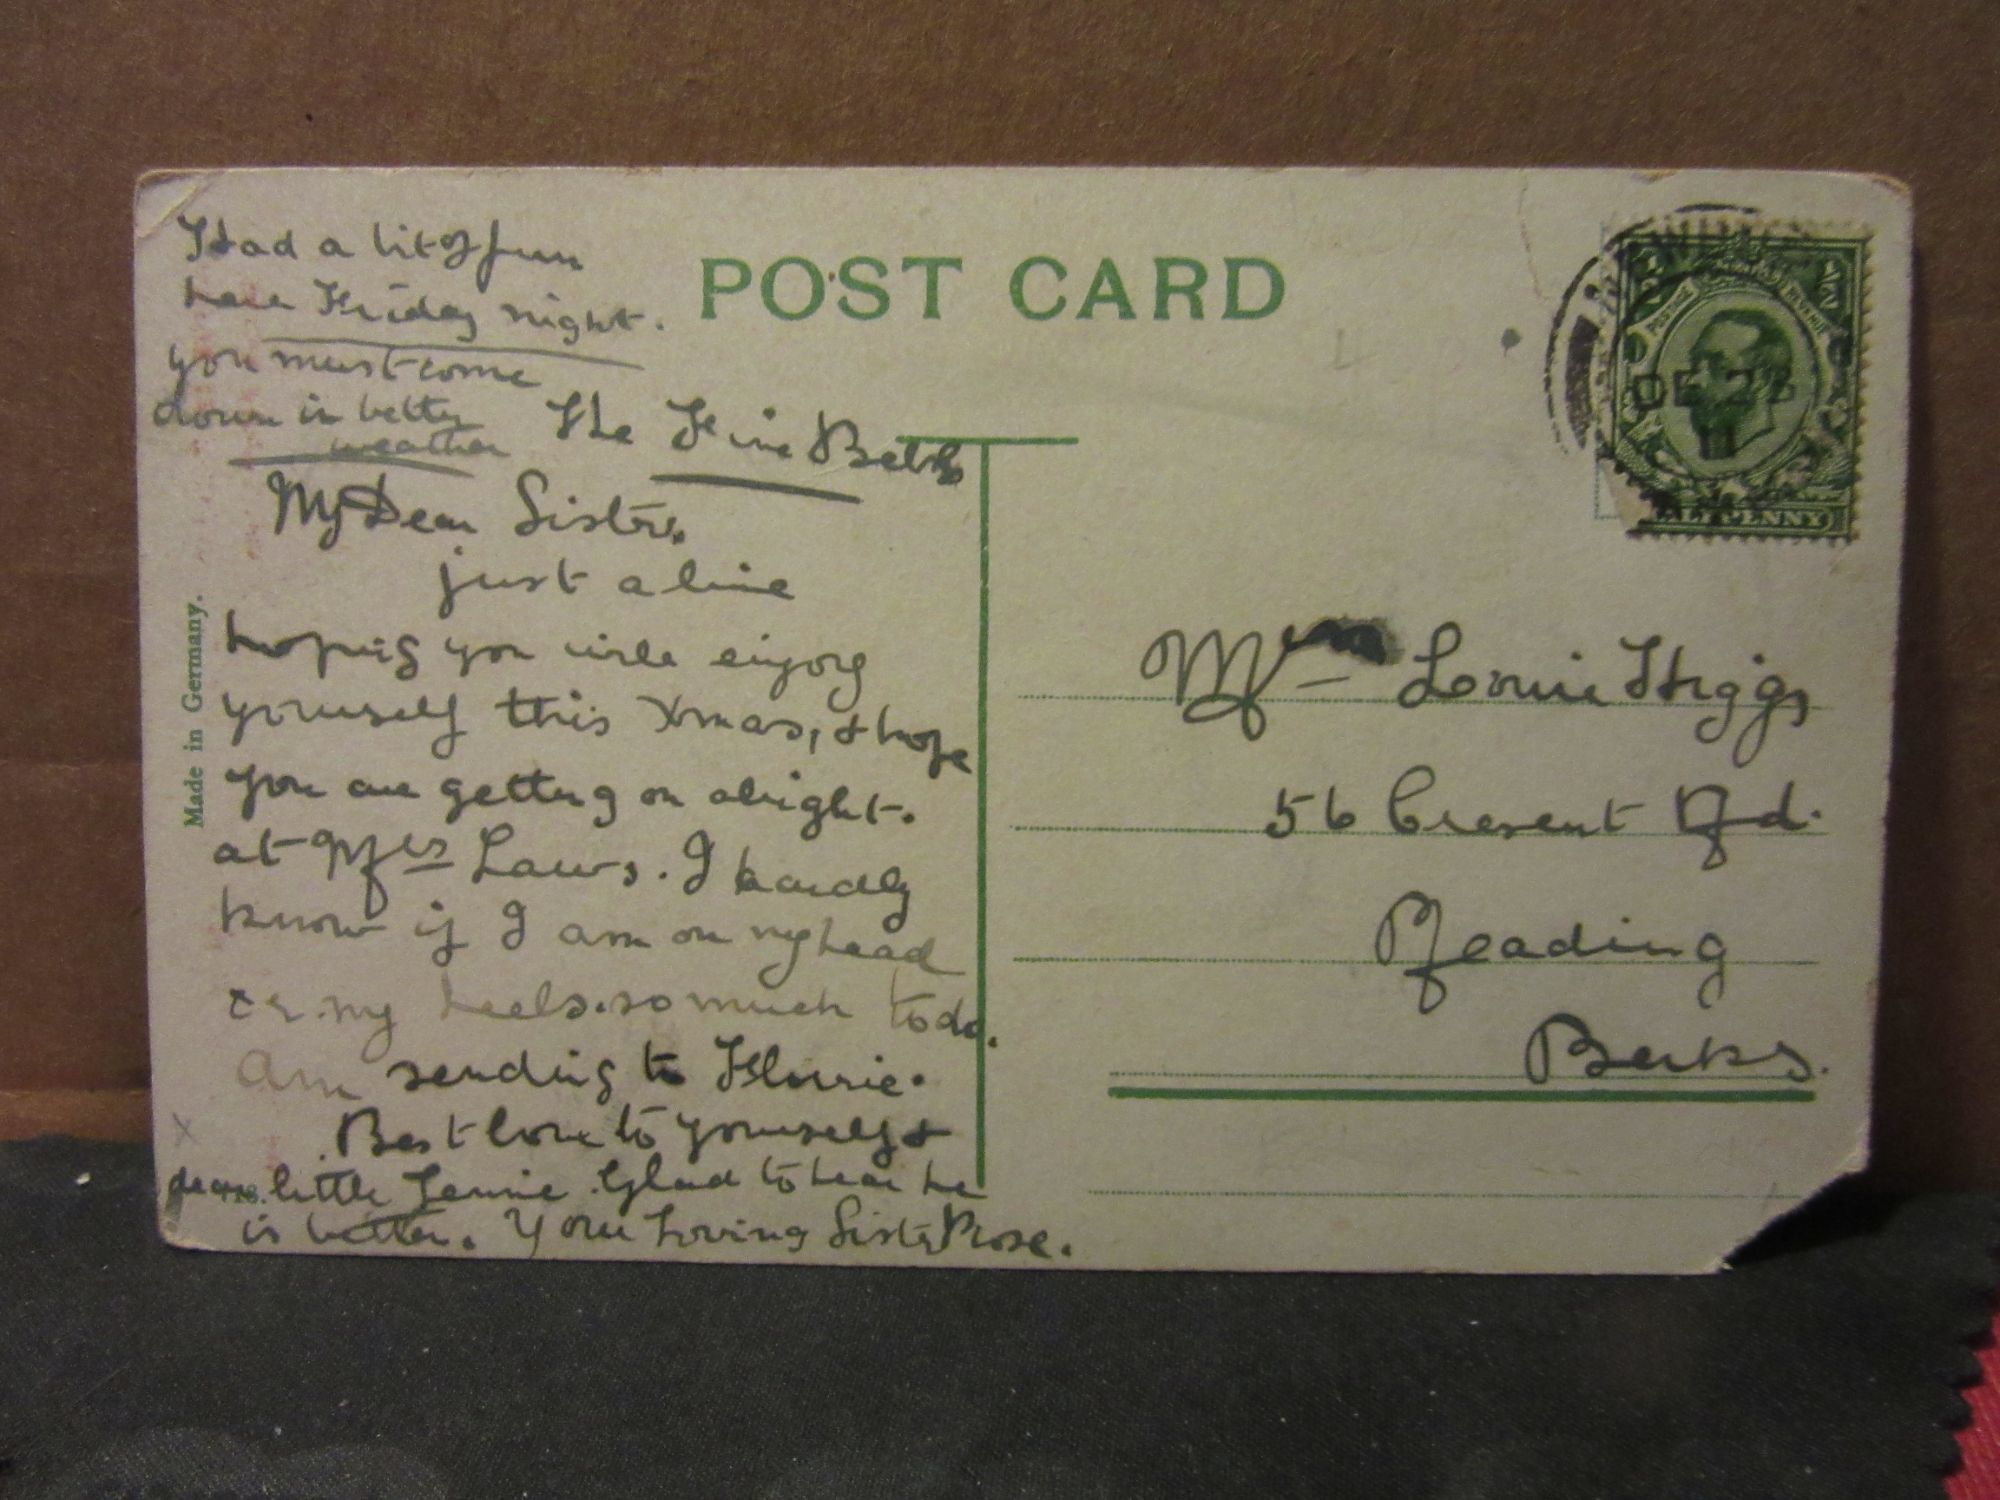 I Had a bit of fun
here Friday night.
you must come
down in better
weather
POST CARD
The Fire Bells
My Dear Sister.
just a line
hoping you will enjoy
yourself this Xmas, & hope
you are getting on alright.
at Mrs Laws. I hardly
know if I am on my head
or my heels. so much to do.
am sending to Florrie.
Best love to yourself &
dear little Lennie. Glad to hear he
is better. Your Loving Sister Rose.
Made in Germany.
Louie Higgs
56 Cresent Rd.
Reading
Berks.
POSTAGE
HALFPENNY